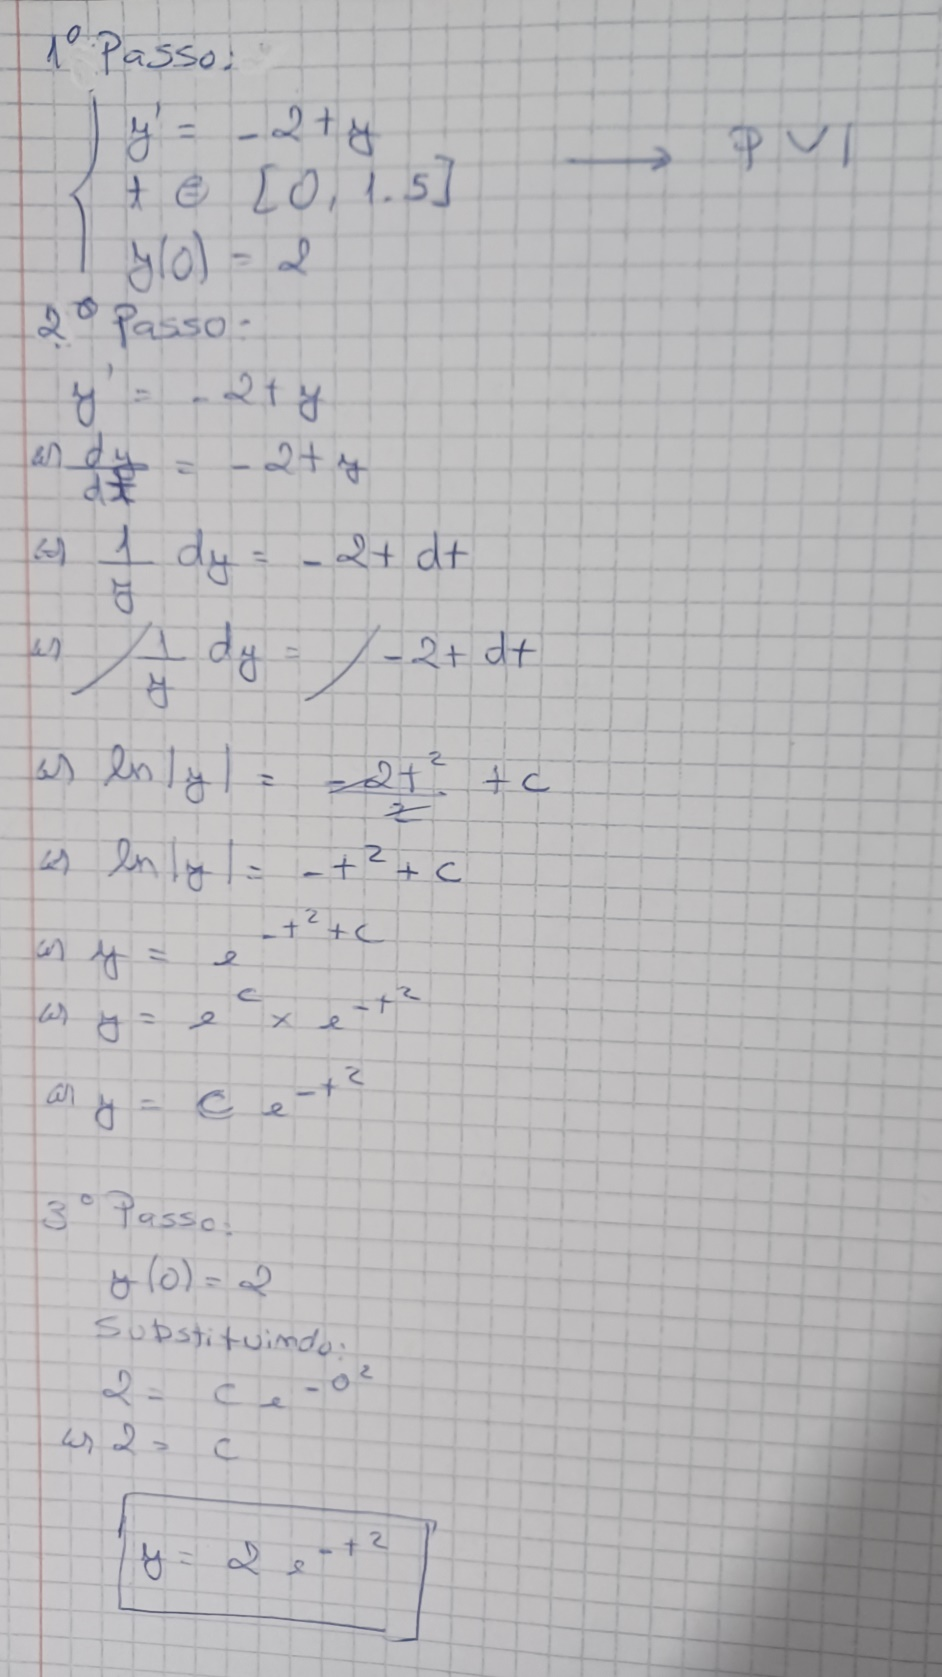 1º Passo:
y' = -2ty
t ∈ [0, 1.5] → PVI
y(0) = 2
2º Passo:
y' = -2ty
⇔ dy/dt = -2ty
⇔ 1/y dy = -2t dt
⇔ ∫ 1/y dy = ∫ -2t dt
⇔ ln|y| = -2t²/2 + c
⇔ ln|y| = -t² + c
⇔ y = e^(-t²+c)
⇔ y = e^c × e^(-t²)
⇔ y = C e^(-t²)
3º Passo:
y(0) = 2
Substituindo:
2 = c e^(-0²)
⇔ 2 = c
y = 2 e^(-t²)